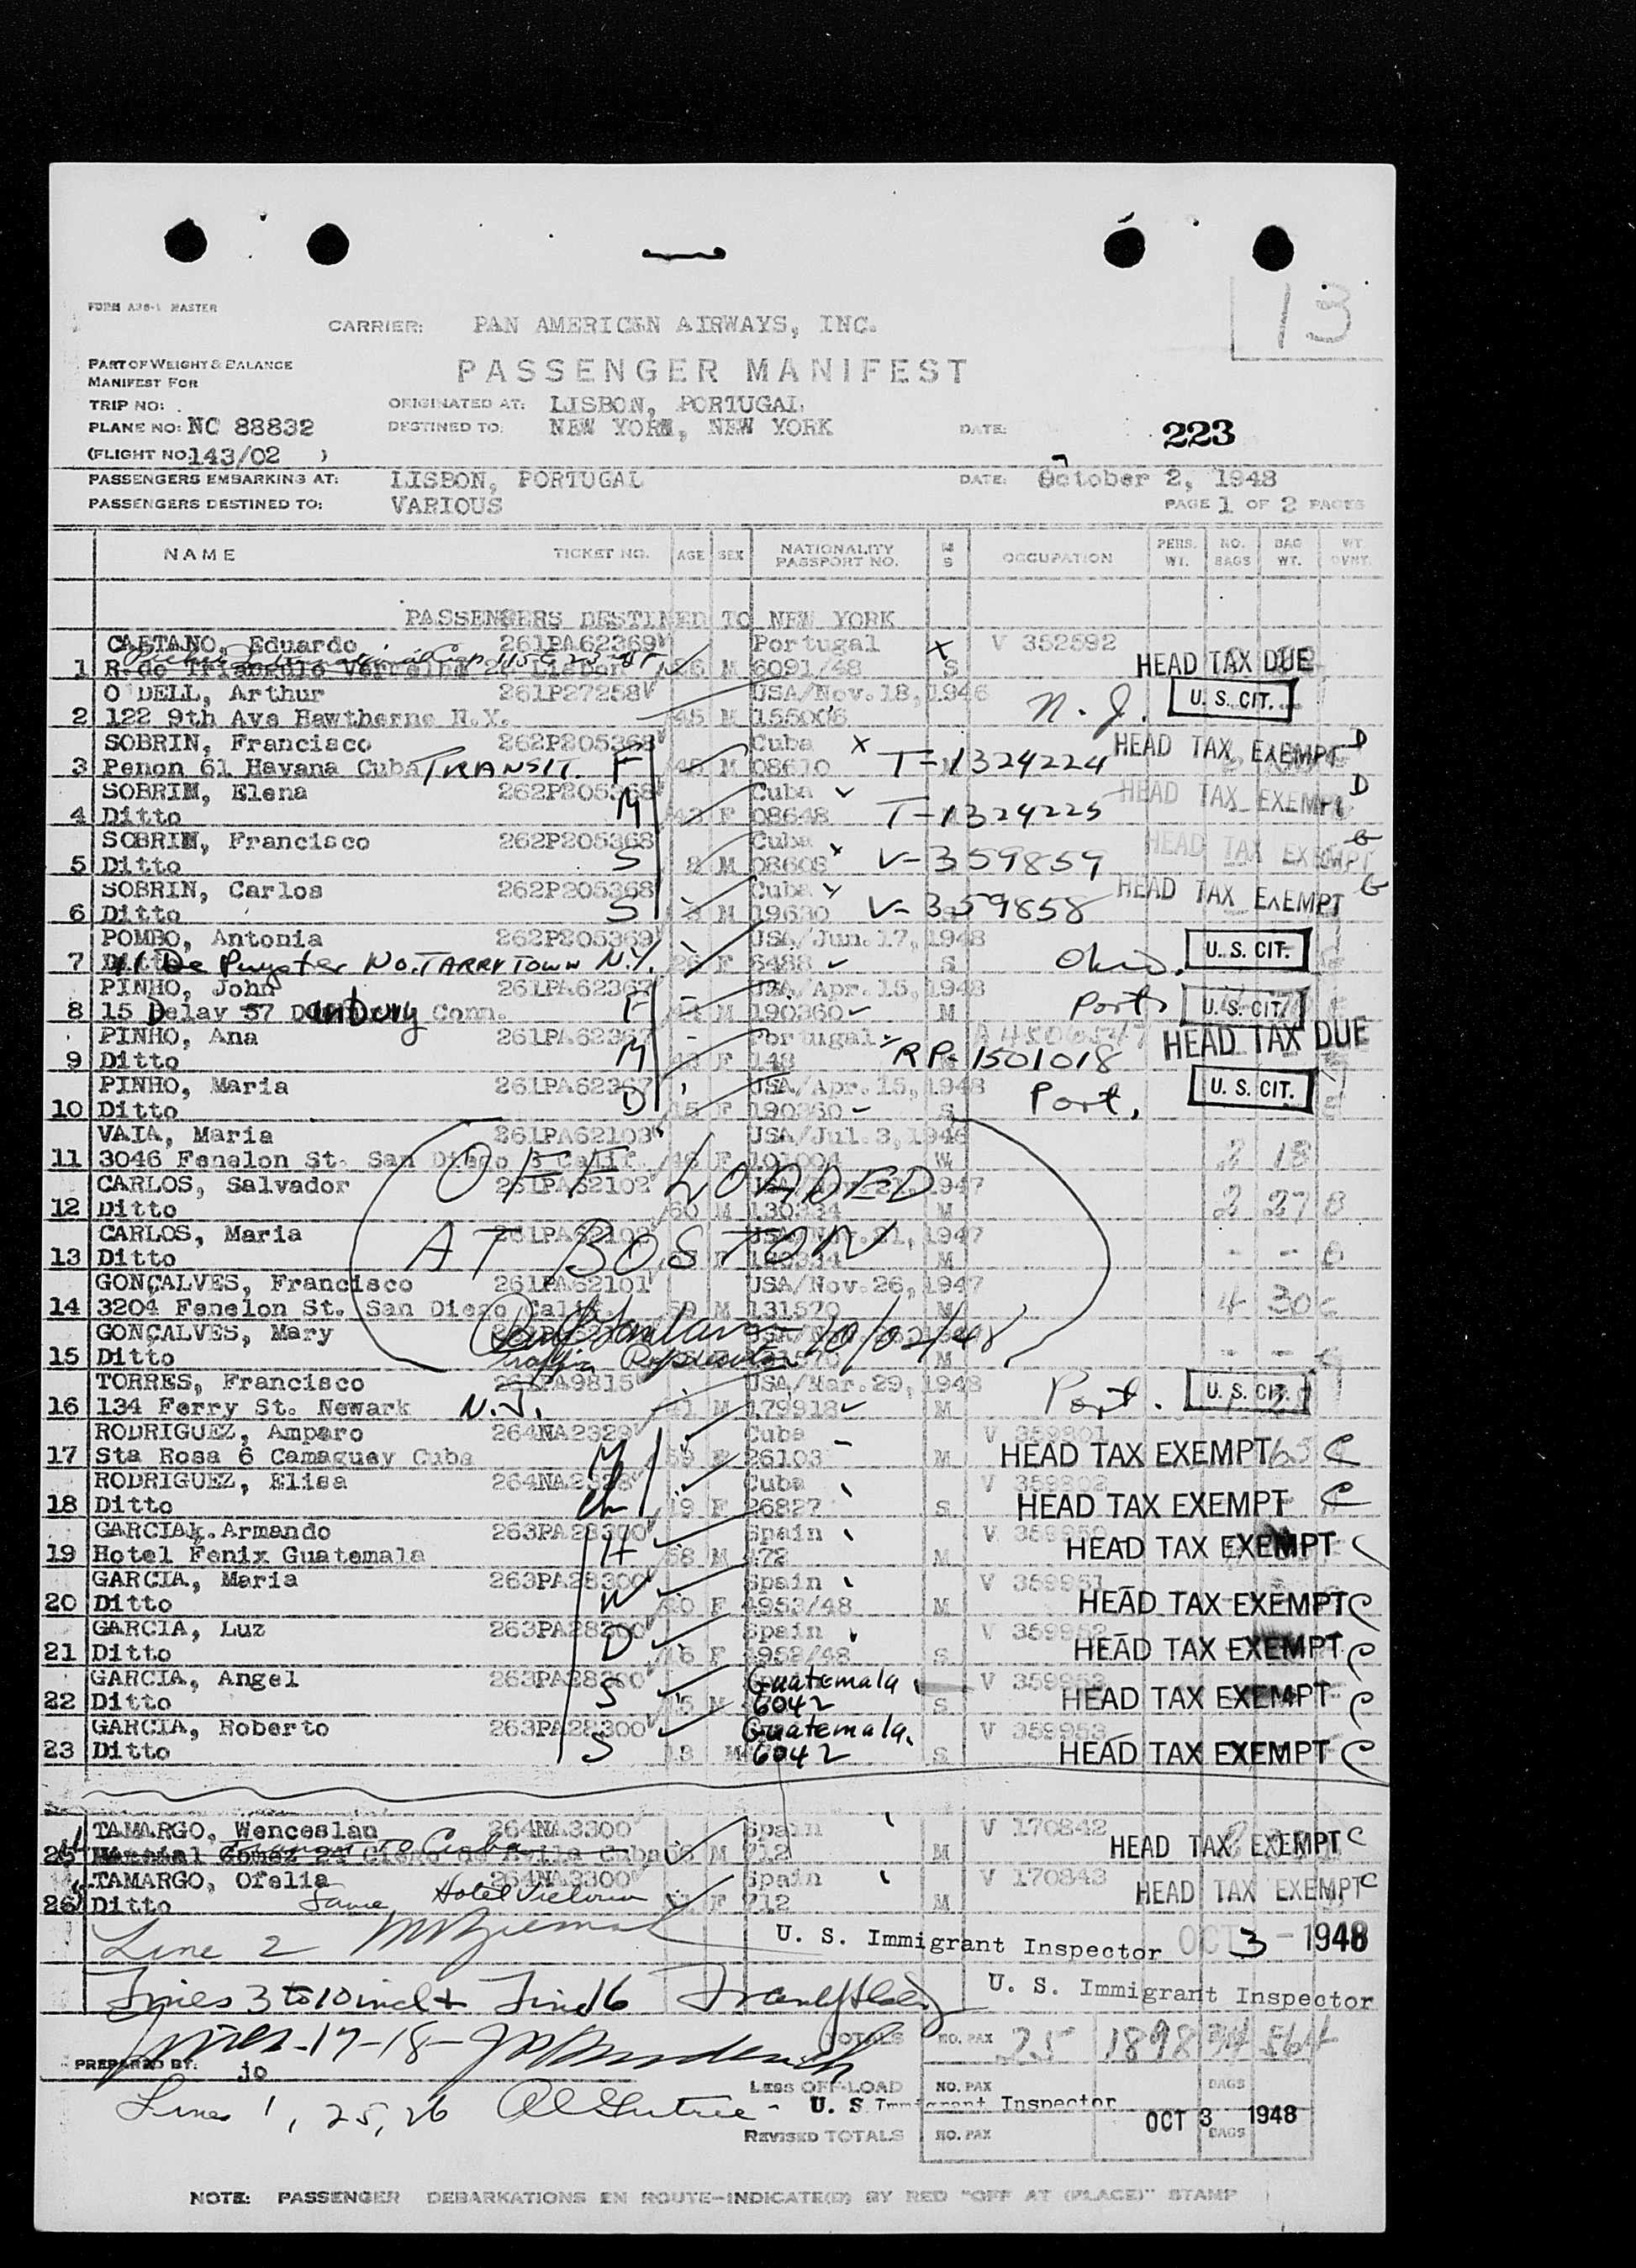 13
FORM A36-1 MASTER
CARRIER: PAN AMERICAN AIRWAYS, INC.
PART OF WEIGHT & BALANCE
MANIFEST FOR
PASSENGER MANIFEST
TRIP NO: ORIGINATED AT: LISBON, PORTUGAL
PLANE NO: NC 88832 DESTINED TO: NEW YORK, NEW YORK DATE: 223
(FLIGHT NO. 143/02 )
PASSENGERS EMBARKING AT: LISBON, PORTUGAL DATE: October 2, 1948
PASSENGERS DESTINED TO: VARIOUS PAGE 1 OF 2 PAGES
NAME TICKET NO. AGE SEX NATIONALITY PASSPORT NO. M S OCCUPATION PERS. WT. NO. BAGS BAG WT. WT. OVNT.
PASSENGERS DESTINED TO NEW YORK
CAETANO, Eduardo 261PA62369 Portugal X V 352592
1 Lisbon M 6091/48 S HEAD TAX DUE
O'DELL, Arthur 261P27258 USA/Nov.18,1946
2 122 9th Ave Hawthorne N.Y. 45 M 155006 N.J. U.S. CIT.
SOBRIN, Francisco 262P205368 Cuba X
3 Penon 61 Havana Cuba TRANSIT. F M 08610 T-1324224 HEAD TAX EXEMPT D
SOBRIM, Elena 262P205368 Cuba
4 Ditto M 42 F 08648 T-1324225 HEAD TAX EXEMPT D
SOBRIN, Francisco 262P205368 Cuba
5 Ditto S 8 M 08608 V-359859 HEAD TAX EXEMPT G
SOBRIN, Carlos 262P205368 Cuba
6 Ditto S M 19630 V-359858 HEAD TAX EXEMPT G
POMBO, Antonia 262P205369 USA/Jun.17,1948
7 De Puyster NO. TARRYTOWN N.Y. 26 F 6488 S Ohio. U.S. CIT.
PINHO, John 261PA62367 USA/Apr.15,1948
8 15 Delay Danbury Conn. F M 190360 M Port. U.S. CIT.
PINHO, Ana 261PA62367 Portugal
9 Ditto M F 148 RP-1501018 HEAD TAX DUE
PINHO, Maria 261PA62367 USA/Apr.15,1948
10 Ditto D 15 F 190360 S Port. U.S. CIT.
VAIA, Maria 261PA62103 USA/Jul.3,1946
11 3046 Fenelon St. San Diego 6 Calif. F 101004 W 2 18
CARLOS, Salvador 261PA62102 1947
12 Ditto 60 M 130334 M 2 27 8
CARLOS, Maria 261PA62102 1947
13 Ditto F 130334 M - - 0
OFF LOADED
AT BOSTON
GONÇALVES, Francisco 261PA62101 USA/Nov.26,1947
14 3204 Fenelon St. San Diego Calif. 59 M 131570 M 4 30
GONÇALVES, Mary 10/02/48
15 Ditto Traffic M - -
TORRES, Francisco USA/Mar.29,1948
16 134 Ferry St. Newark N.J. 41 M 179918 M Port. U.S. CIT.
RODRIGUEZ, Amparo 264NA2329 Cuba V 359801
17 Sta Rosa 6 Camaguey Cuba M 59 F 26103 M HEAD TAX EXEMPT C
RODRIGUEZ, Elisa 264NA2328 Cuba V 359802
18 Ditto 19 F 26827 S HEAD TAX EXEMPT C
GARCIA, Armando 263PA28300 Spain
19 Hotel Fenix Guatemala H 58 M 472 M HEAD TAX EXEMPT C
GARCIA, Maria 263PA28300 Spain V 359951
20 Ditto W F 4953/48 M HEAD TAX EXEMPT C
GARCIA, Luz 263PA28300 Spain V 359952
21 Ditto D 16 F 4952/48 S HEAD TAX EXEMPT C
GARCIA, Angel 263PA28300 Guatemala
22 Ditto S 15 M 6042 S HEAD TAX EXEMPT C
GARCIA, Roberto 263PA28300 Guatemala. V 359953
23 Ditto S 13 M 6042 S HEAD TAX EXEMPT C
TAMARGO, Wenceslao 264NA3300 Spain V 170842
25 Cuba M 712 M HEAD TAX EXEMPT C
TAMARGO, Ofelia 264NA3300 Spain V 170843
26 Ditto Same Hotel Victoria F 712 M HEAD TAX EXEMPT C
Line 2 U. S. Immigrant Inspector OCT 3 - 1948
Lines 3 to 10 incl + Line 16 U. S. Immigrant Inspector
Lines 17-18- TOTALS NO. PAX 25 1898 34 564
PREPARED BY: jo
LESS OFF-LOAD NO. PAX BAGS
Lines 1, 25, 26 U. S. Immigrant Inspector OCT 3 1948
REVISED TOTALS NO. PAX BAGS
NOTE: PASSENGER DEBARKATIONS EN ROUTE-INDICATE(D) BY RED "OFF AT (PLACE)" STAMP